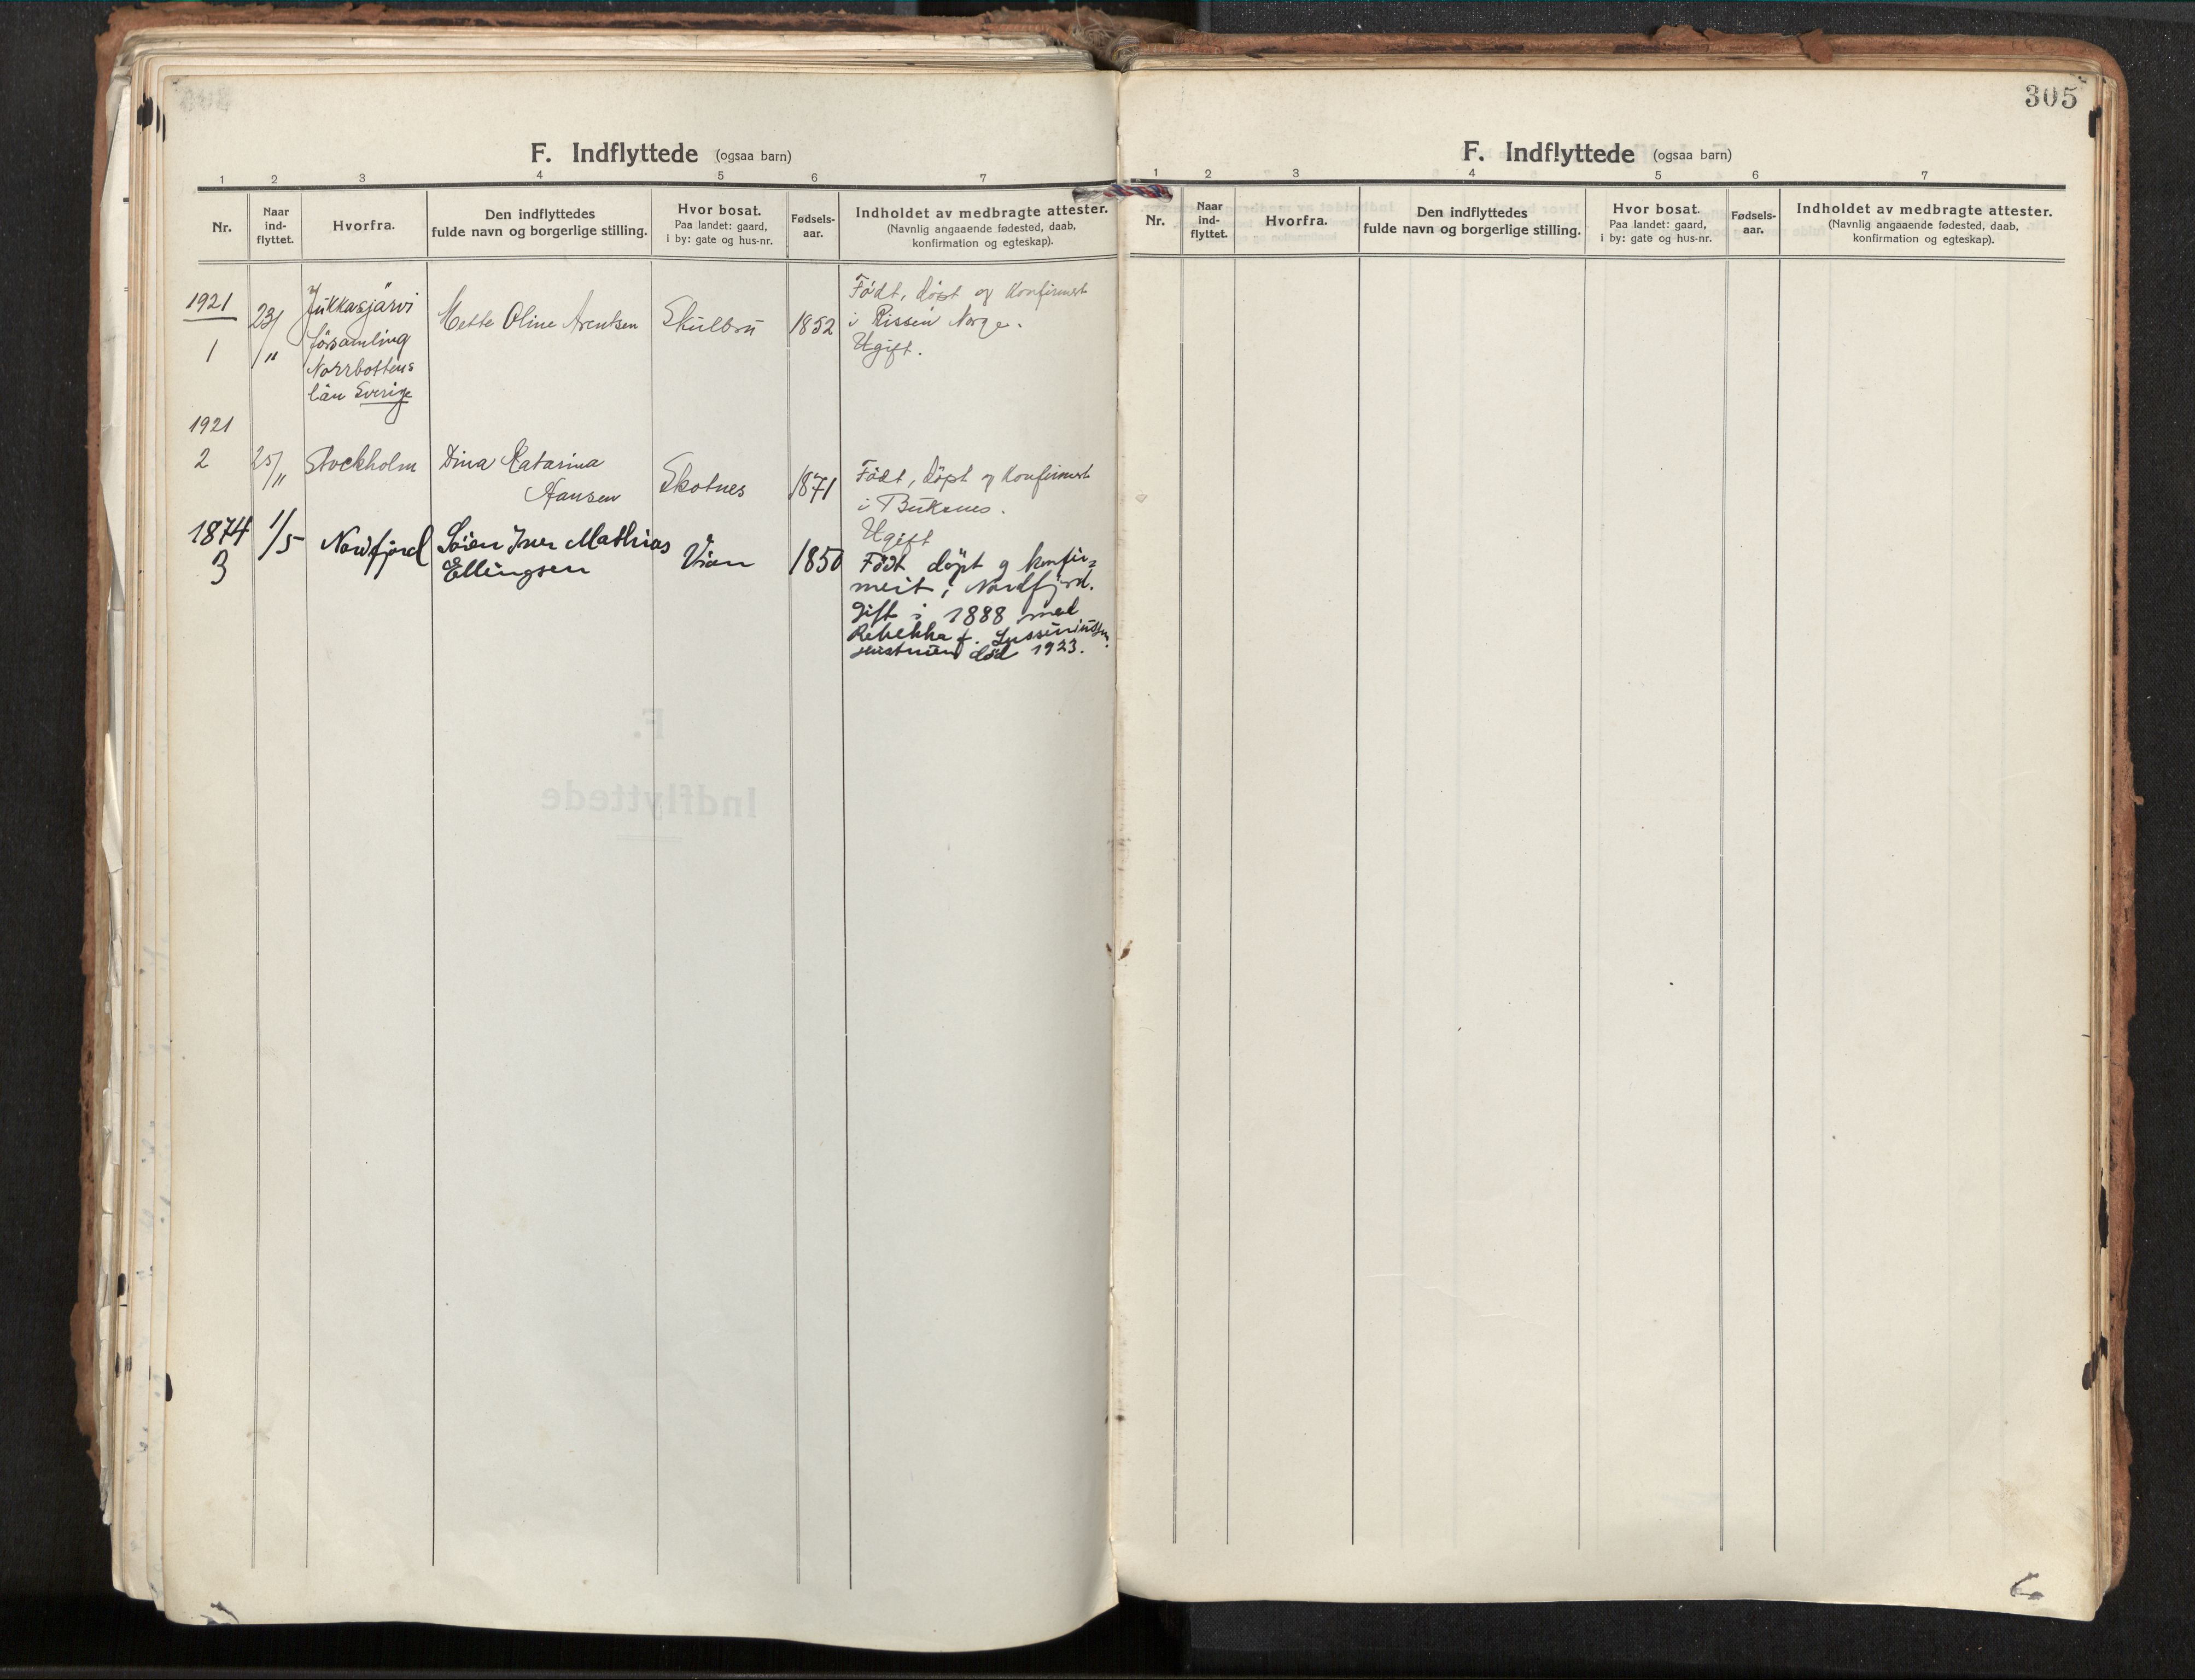 F. Indflyttede (ogsaa barn)
1 2 3 4 5 6 7
Nr.
Naar
ind-
flyttet.
Hvorfra.
Den indflyttedes
fulde navn og borgerlige stilling.
Hvor bosat.
Paa landet: gaard,
i by: gate og hus-nr.
Fødsels-
aar.
Indholdet av medbragte attester.
(Navnlig angaaende fødested, daab,
konfirmation og egteskap).
1921
1
23/
"
Jukkasjärvi
församling
Norrbottens
län Sverige
Mette Oline Arentsen
Skulbru
1852
Födt, döpt og Konfirmert
i Rissen Norge.
Ugift.
1921
2
25/
"
Stockholm
Dina Katarina
Hansen
Skotnes
1871
Födt, döpt og Konfirmert
i Buksnes.
Ugift
1874
3
1/5
Nordfjord
Sören Iver Mathias
Ellingsen
1850
Födt döpt g konfir=
mert i Nordfjord.
Gift i 1888 med
Rebekka f.
død 1923.
305
F. Indflyttede (ogsaa barn)
1 2 3 4 5 6 7
Nr.
Naar
ind-
flyttet.
Hvorfra.
Den indflyttedes
fulde navn og borgerlige stilling.
Hvor bosat.
Paa landet: gaard,
i by: gate og hus-nr.
Fødsels-
aar.
Indholdet av medbragte attester.
(Navnlig angaaende fødested, daab,
konfirmation og egteskap).